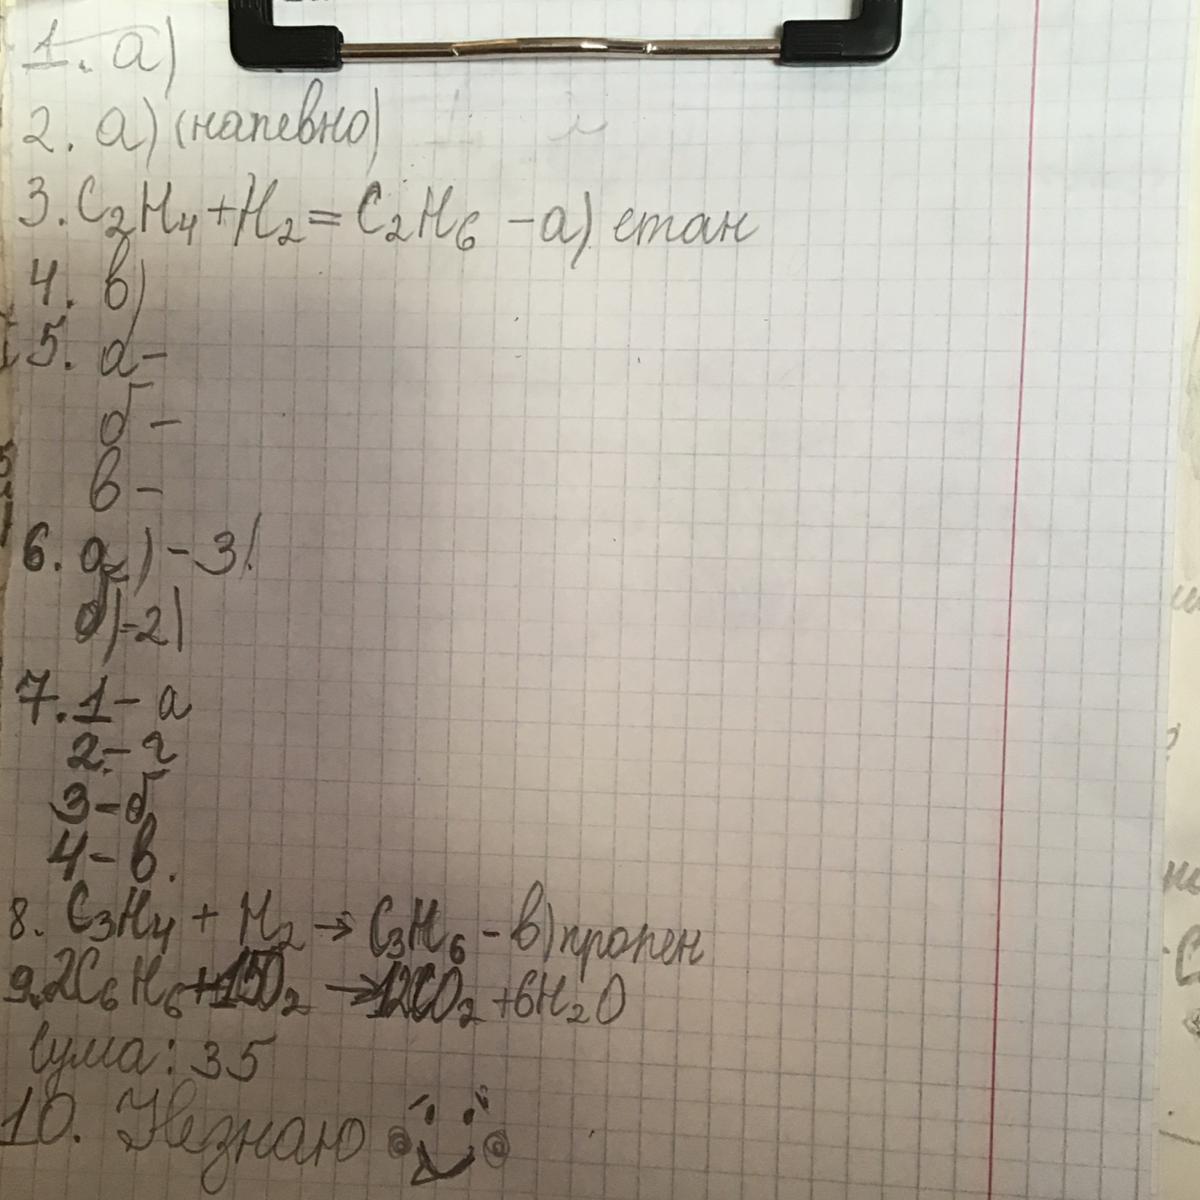 1. а)
2. а) (напевно)
3. C₂H₄ + H₂ = C₂H₆ - а) етан
4. в)
5. а -
б -
в -
6. а) - 3)
б) - 2)
7. 1 - а
2 - г
3 - б
4 - в.
8. C₃H₄ + H₂ → C₃H₆ - в) пропен
9. 2C₆H₆ + 15O₂ → 12CO₂ + 6H₂O
Сума: 35
10. Незнаю